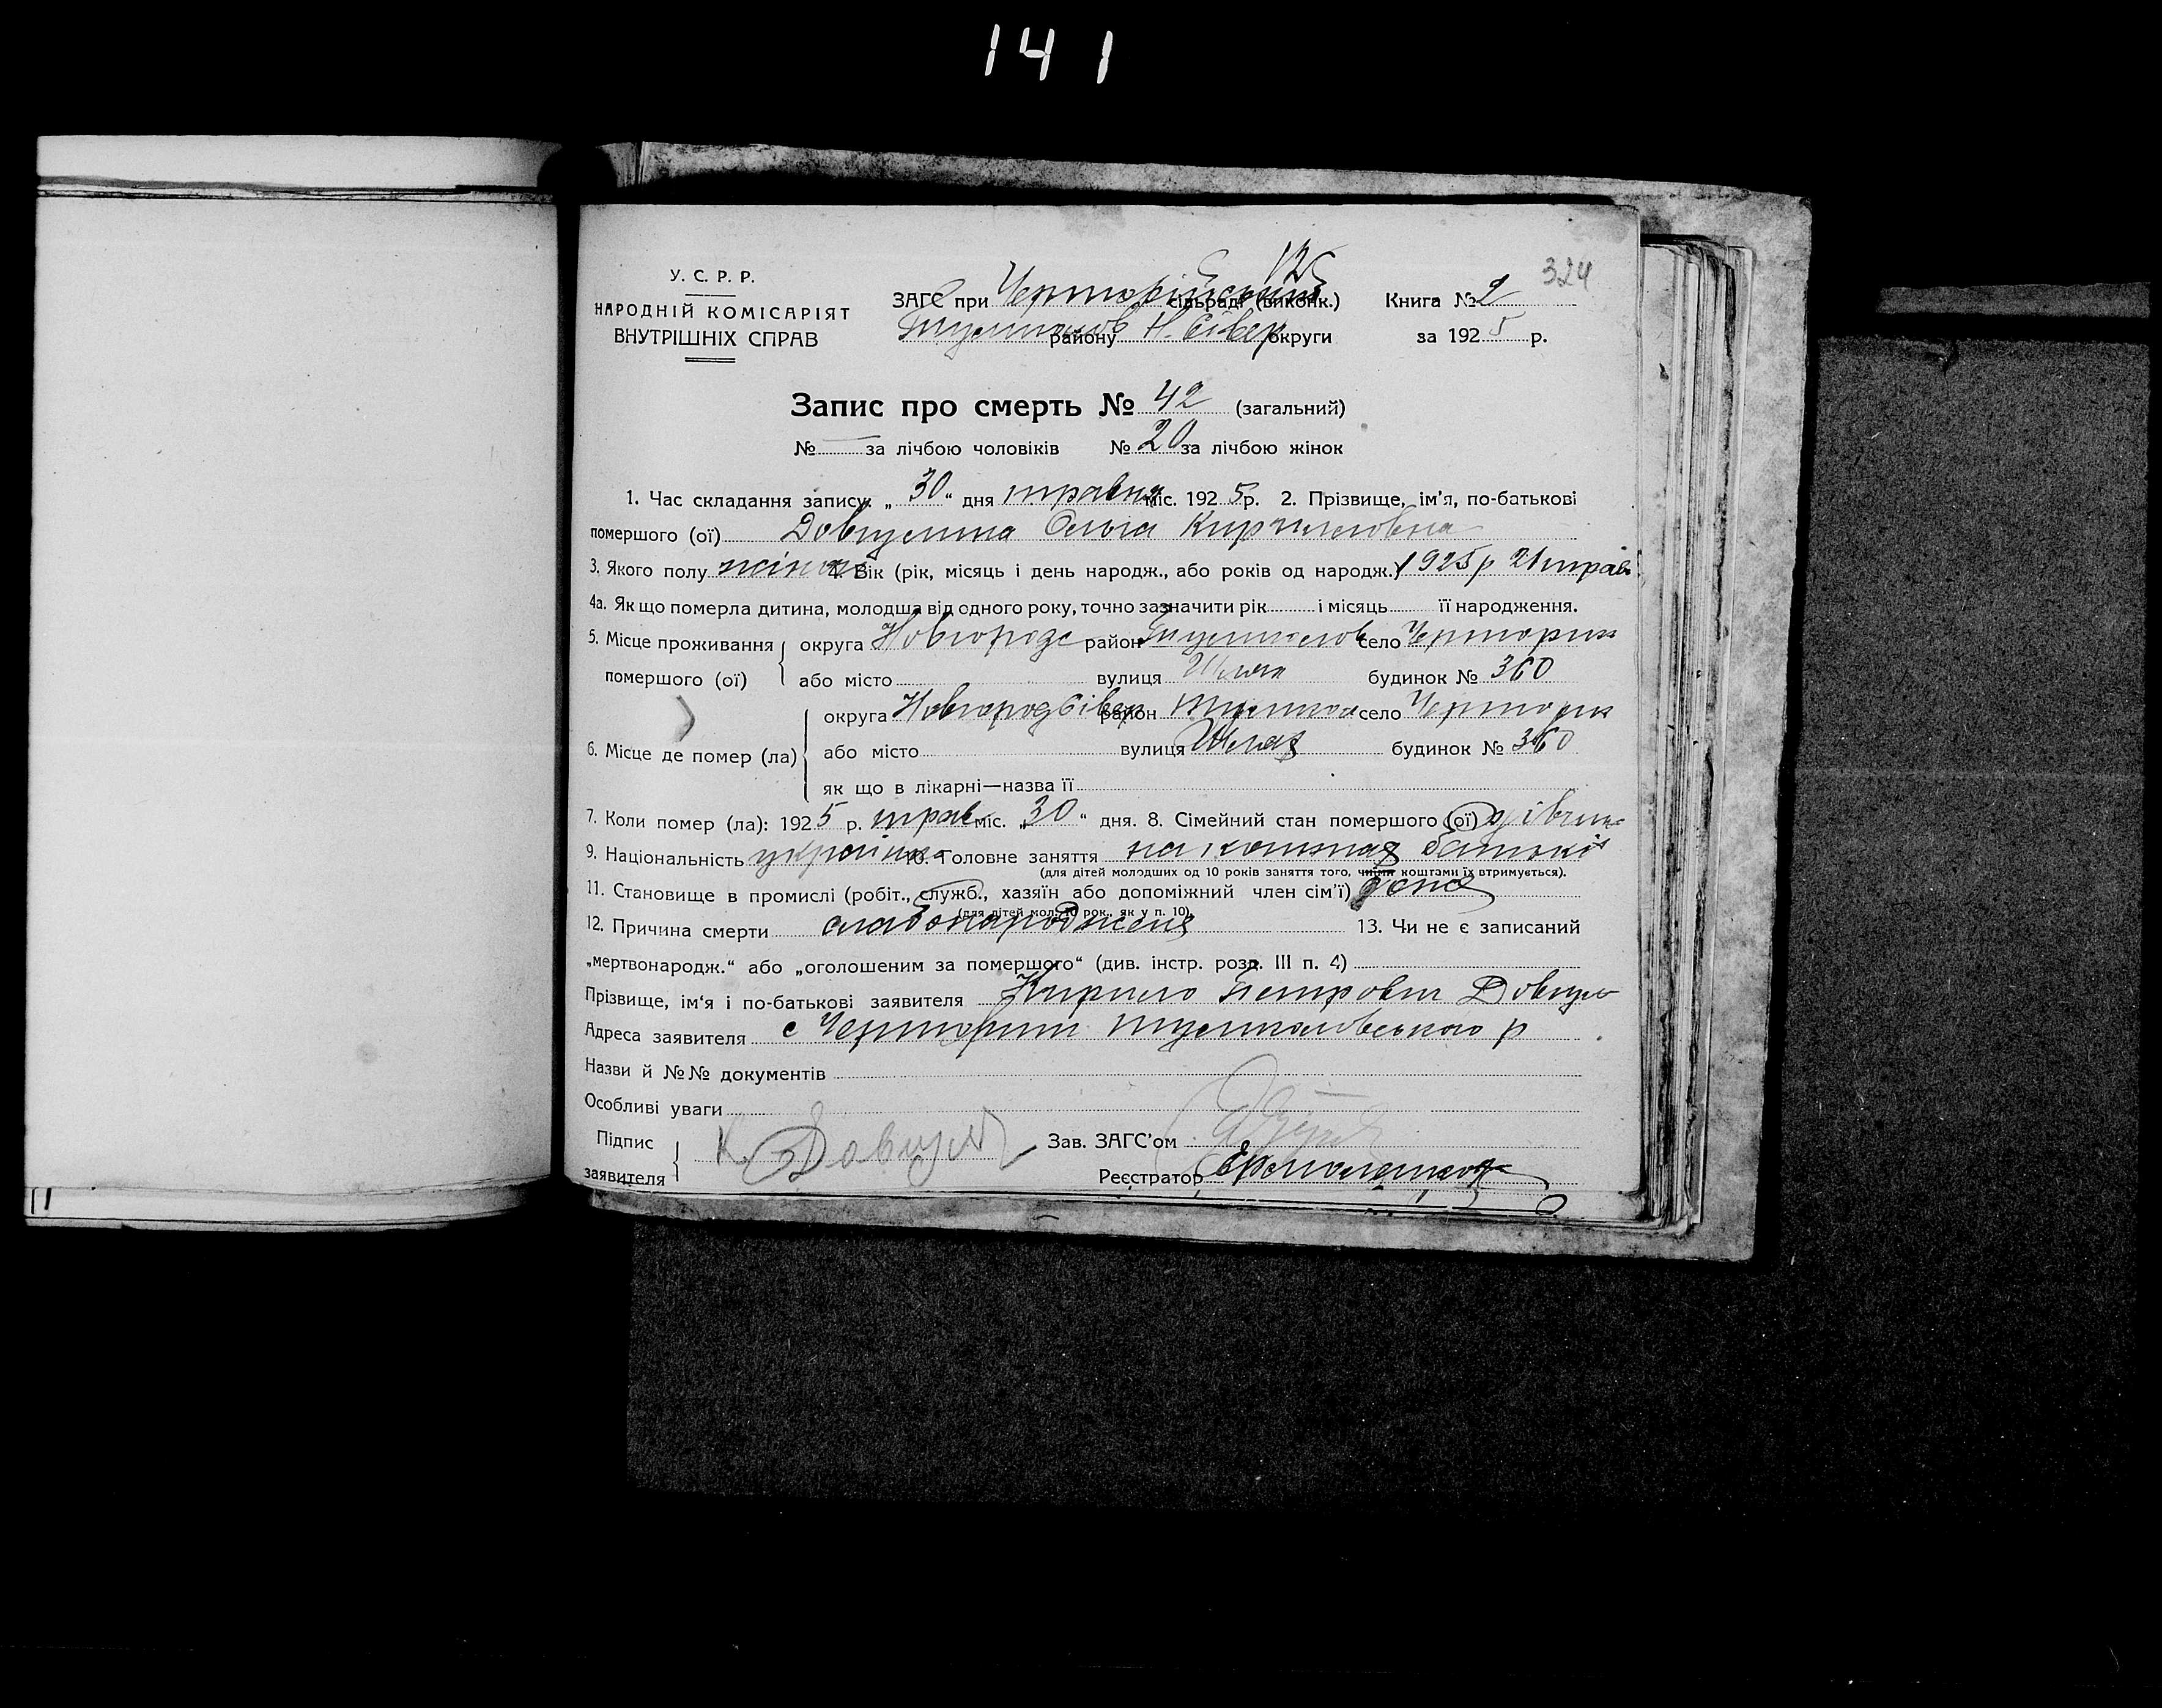 141
125
324
У. С. Р. Р.
НАРОДНІЙ КОМІСАРІЯТ
ВНУТРІШНІХ СПРАВ
ЗАГС при Чорторійський сільраді (виконк.) Книга № 2
району Н. Сівер округи за 1925 р.
Запис про смерть № 42 (загальний)
№ — за лічбою чоловіків № 20 за лічбою жінок
1. Час складання запису: „30“ дня травня міс. 1925 р. 2. Прізвище, ім’я, по-батькові
помершого (ої) Ольга Кириловна
3. Якого полу жіноч 4. Вік (рік, місяць і день народж., або років од народж.) 1925 р 21 трав
4а. Як що померла дитина, молодша від одного року, точно зазначити рік і місяць її народження.
5. Місце проживання округа Новгородс район село
помершого (ої) або місто вулиця Шлях будинок № 360
округа НовгородСівер район село
6. Місце де помер (ла) або місто вулиця Шлях будинок № 360
як що в лікарні—назва її
7. Коли помер (ла): 1925 р. трав міс. „30“ дня. 8. Сімейний стан помершого (ої) дівчин
9. Національність українка 10. Головне заняття на коштах батьків
(для дітей молодших од 10 років заняття того, чиїми коштами їх втримується).
11. Становище в промислі (робіт., служб., хазяїн або допоміжний член сім’ї) дочка
(для дітей мол. 10 рок., як у п. 10).
12. Причина смерти слабонароджена 13. Чи не є записаний
„мертвонародж.“ або „оголошеним за помершого“ (див. інстр. розд. III п. 4)
Прізвище, ім‘я і по-батькові заявителя Кирило Петрович
Адреса заявителя с р
Назви й №№ документів
Особливі уваги
Підпис Зав. ЗАГС’ом
заявителя К
Реєстратор